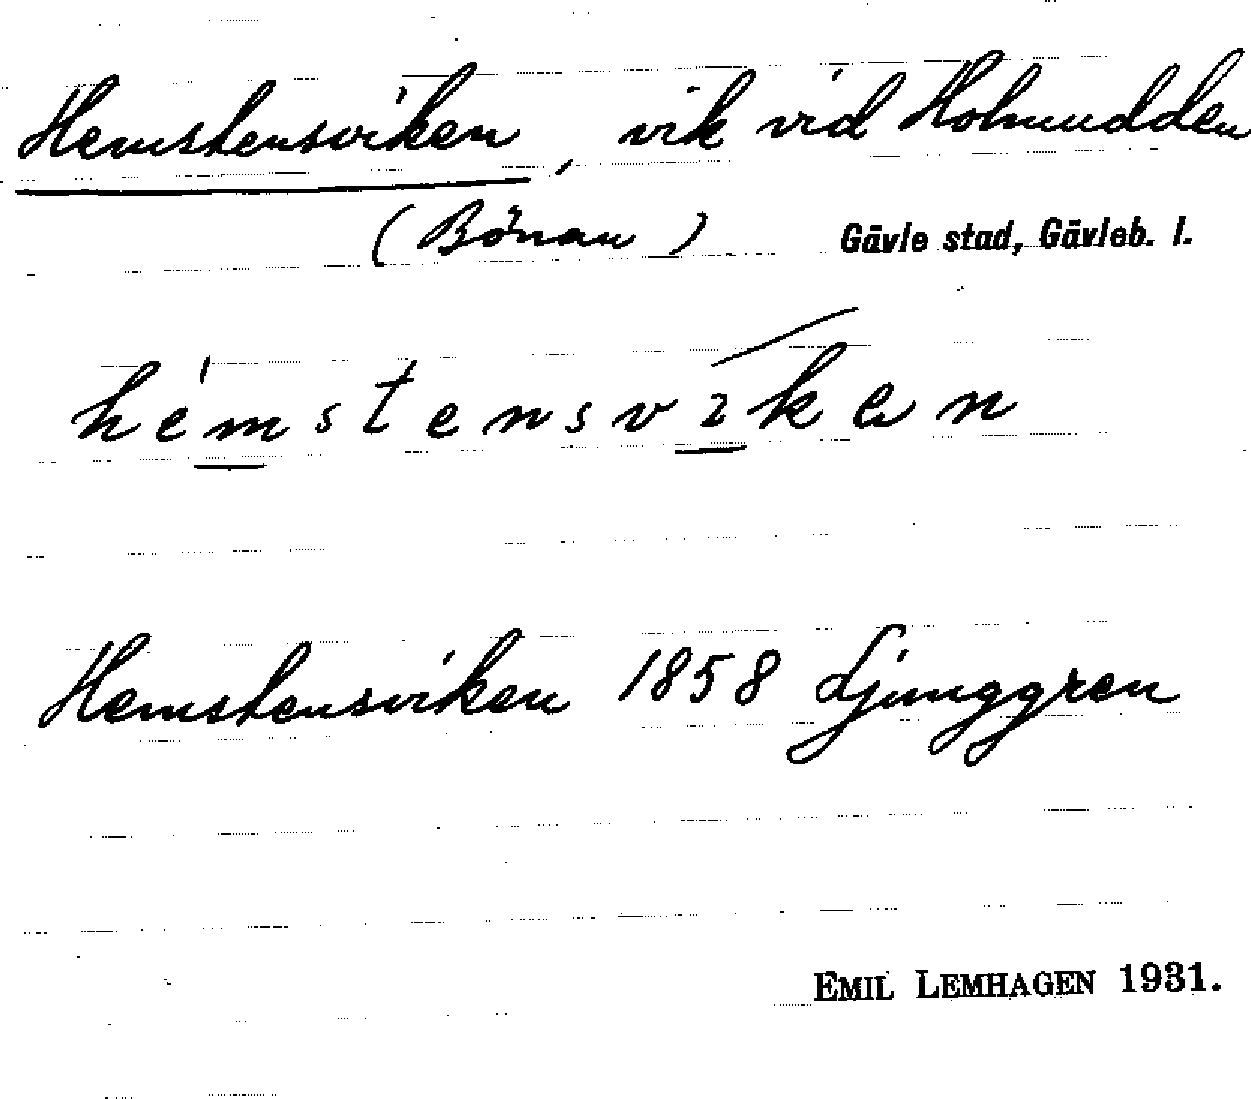 Hemstensviken, vik vid Holmudden
(Bönan) Gävle stad, Gävleb. l.
hemstensviken
Hemstensviken 1858 Ljunggren
EMIL LEMHAGEN 1931.